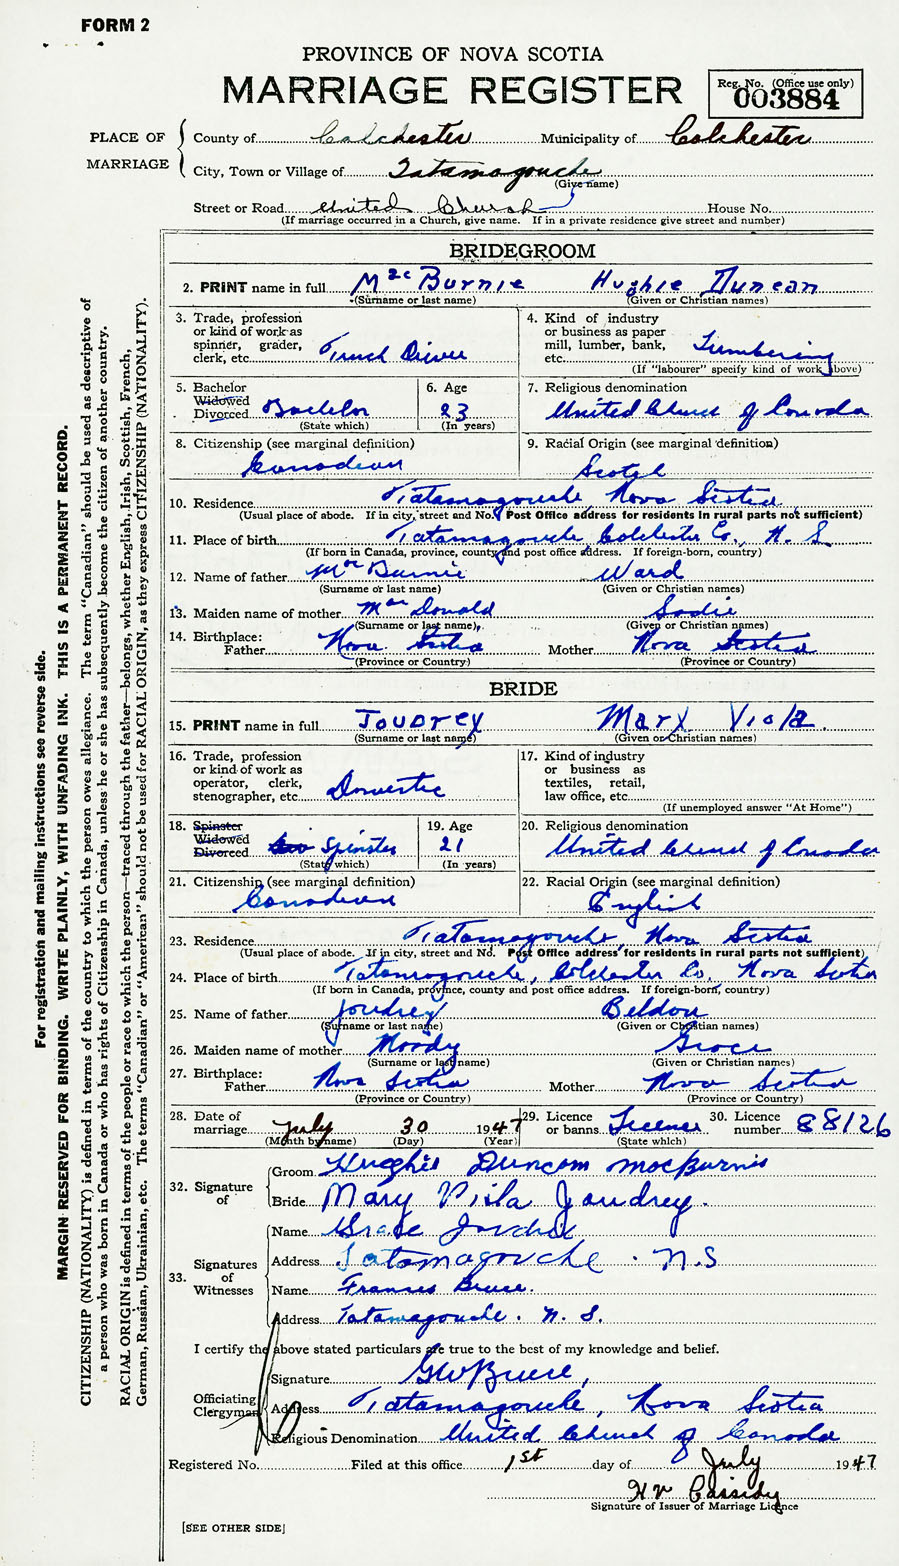 FORM 2
PROVINCE OF NOVA SCOTIA
MARRIAGE REGISTER
Reg. No. (Office use only)
003884
PLACE OF MARRIAGE
County of Colchester Municipality of Colchester
City, Town or Village of Tatamagouche
(Give name)
Street or Road United Church House No.
(If marriage occurred in a Church, give name. If in a private residence give street and number)
BRIDEGROOM
2. PRINT name in full MacBurnie Hughie Duncan
(Surname or last name) (Given or Christian names)
3. Trade, profession or kind of work as spinner, grader, clerk, etc. Truck Driver
4. Kind of industry or business as paper mill, lumber, bank, etc. Lumbering
(If "labourer" specify kind of work above)
5. Bachelor Widowed Divorced Bachelor
(State which)
6. Age 23
(In years)
7. Religious denomination
United Church of Canada
8. Citizenship (see marginal definition)
Canadian
9. Racial Origin (see marginal definition)
Scotch
10. Residence Tatamagouche Nova Scotia
(Usual place of abode. If in city, street and No. Post Office address for residents in rural parts not sufficient)
11. Place of birth Tatamagouche Colchester Co., N. S.
(If born in Canada, province, county and post office address. If foreign-born, country)
12. Name of father MacBurnie Ward
(Surname or last name) (Given or Christian names)
13. Maiden name of mother MacDonald Sadie
(Surname or last name) (Given or Christian names)
14. Birthplace:
Father Nova Scotia Mother Nova Scotia
(Province or Country) (Province or Country)
BRIDE
15. PRINT name in full Joudrey Mary Viola
(Surname or last name) (Given or Christian names)
16. Trade, profession or kind of work as operator, clerk, stenographer, etc. Domestic
17. Kind of industry or business as textiles, retail, law office, etc.
(If unemployed answer "At Home")
18. Spinster Widowed Divorced Spinster
(State which)
19. Age 21
(In years)
20. Religious denomination
United Church of Canada
21. Citizenship (see marginal definition)
Canadian
22. Racial Origin (see marginal definition)
English
23. Residence Tatamagouche, Nova Scotia
(Usual place of abode. If in city, street and No. Post Office address for residents in rural parts not sufficient)
24. Place of birth Tatamagouche, Colchester Co. Nova Scotia
(If born in Canada, province, county and post office address. If foreign-born, country)
25. Name of father Joudrey Beldon
(Surname or last name) (Given or Christian names)
26. Maiden name of mother Moody Grace
(Surname or last name) (Given or Christian names)
27. Birthplace:
Father Nova Scotia Mother Nova Scotia
(Province or Country) (Province or Country)
28. Date of marriage July 30 1947
(Month by name) (Day) (Year)
29. Licence or banns License
(State which)
30. Licence number 88126
32. Signature of
Groom Hughie Duncan MacBurnie
Bride Mary Viola Joudrey.
33. Signatures of Witnesses
Name Grace
Address Tatamagouche. N.S
Name Frances Bruce.
Address Tatamagouche. N. S.
I certify the above stated particulars are true to the best of my knowledge and belief.
Officiating Clergyman
Signature GW Bruce,
Address Tatamagouche, Nova Scotia
Religious Denomination United Church of Canada
Registered No. Filed at this office 1st day of July 1947
H V Cassidy
Signature of Issuer of Marriage Licence
[SEE OTHER SIDE]
For registration and mailing instructions see reverse side.
MARGIN RESERVED FOR BINDING. WRITE PLAINLY, WITH UNFADING INK. THIS IS A PERMANENT RECORD.
CITIZENSHIP (NATIONALITY) is defined in terms of the country to which the person owes allegiance. The term "Canadian" should be used as descriptive of
a person who was born in Canada or who has rights of Citizenship in Canada, unless he or she has subsequently become the citizen of another country.
RACIAL ORIGIN is defined in terms of the people or race to which the person—traced through the father—belongs, whether English, Irish, Scottish, French,
German, Russian, Ukrainian, etc. The terms "Canadian" or "American" should not be used for RACIAL ORIGIN, as they express CITIZENSHIP (NATIONALITY).